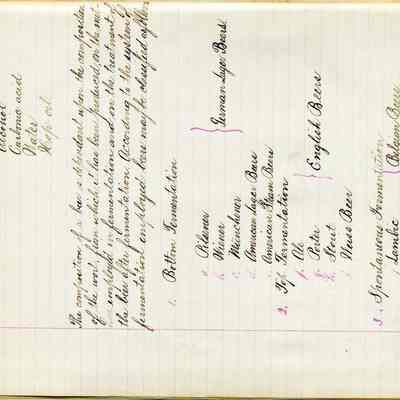 Alcohol
Carbonic acid
Water
Hops oil
The composition of a beer is dependent upon the composition
of the wort from which it has been produced, on the
employed in fermentation and on the treatment of
the beer after fermentation. According to the system of
fermentation employed beers may be classified as follows
1. Bottom Fermentation
a. Pilsener
b. Wiener
c. Münchener
German Lager Beers
d. American Lager Beers
e. American Steam Beers
2. Top Fermentation
f. Ale
g. Porter
h. Stout
English Beers
i. Weiss Beer
3. Spontaneous Fermentation
Lambic
Belgian Beers